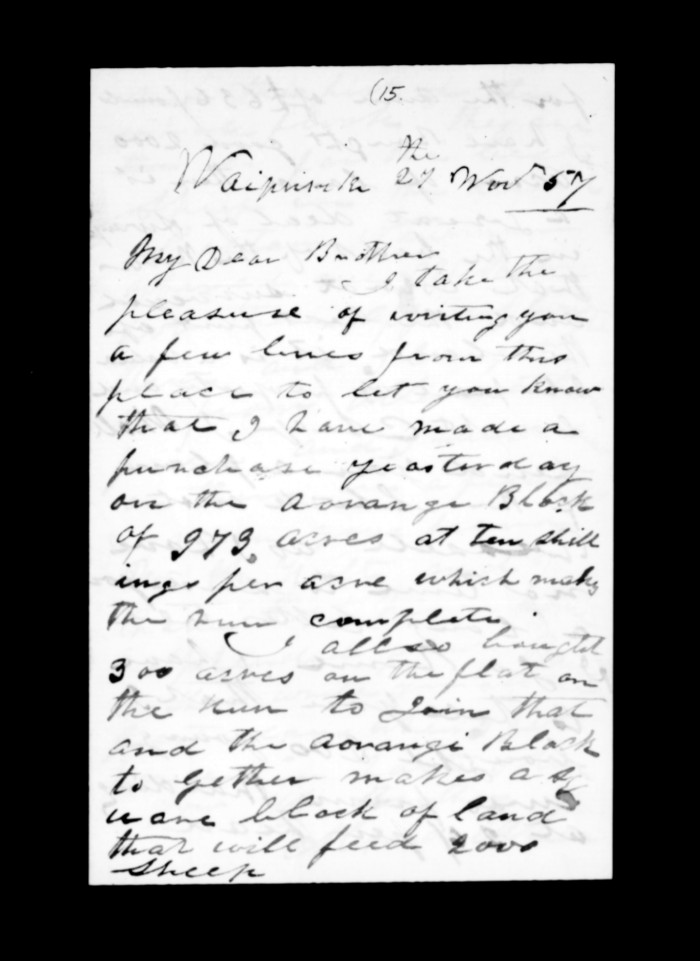 (15.
the
Waipuriku 27 Novr 57
My Dear Brother
I take the
pleasure of writing you
a few lines from this
place to let you know
that I have made a
purchase yeasterday
on the Aorange Block
of 973 acres at ten shill
ings per acre which makes
the run complete.
I allso bought
300 acres on the flat on
the run to Join that
and the Aorangi Block
to Gether makes a sq
uare block of land
that will feed 2000
sheep